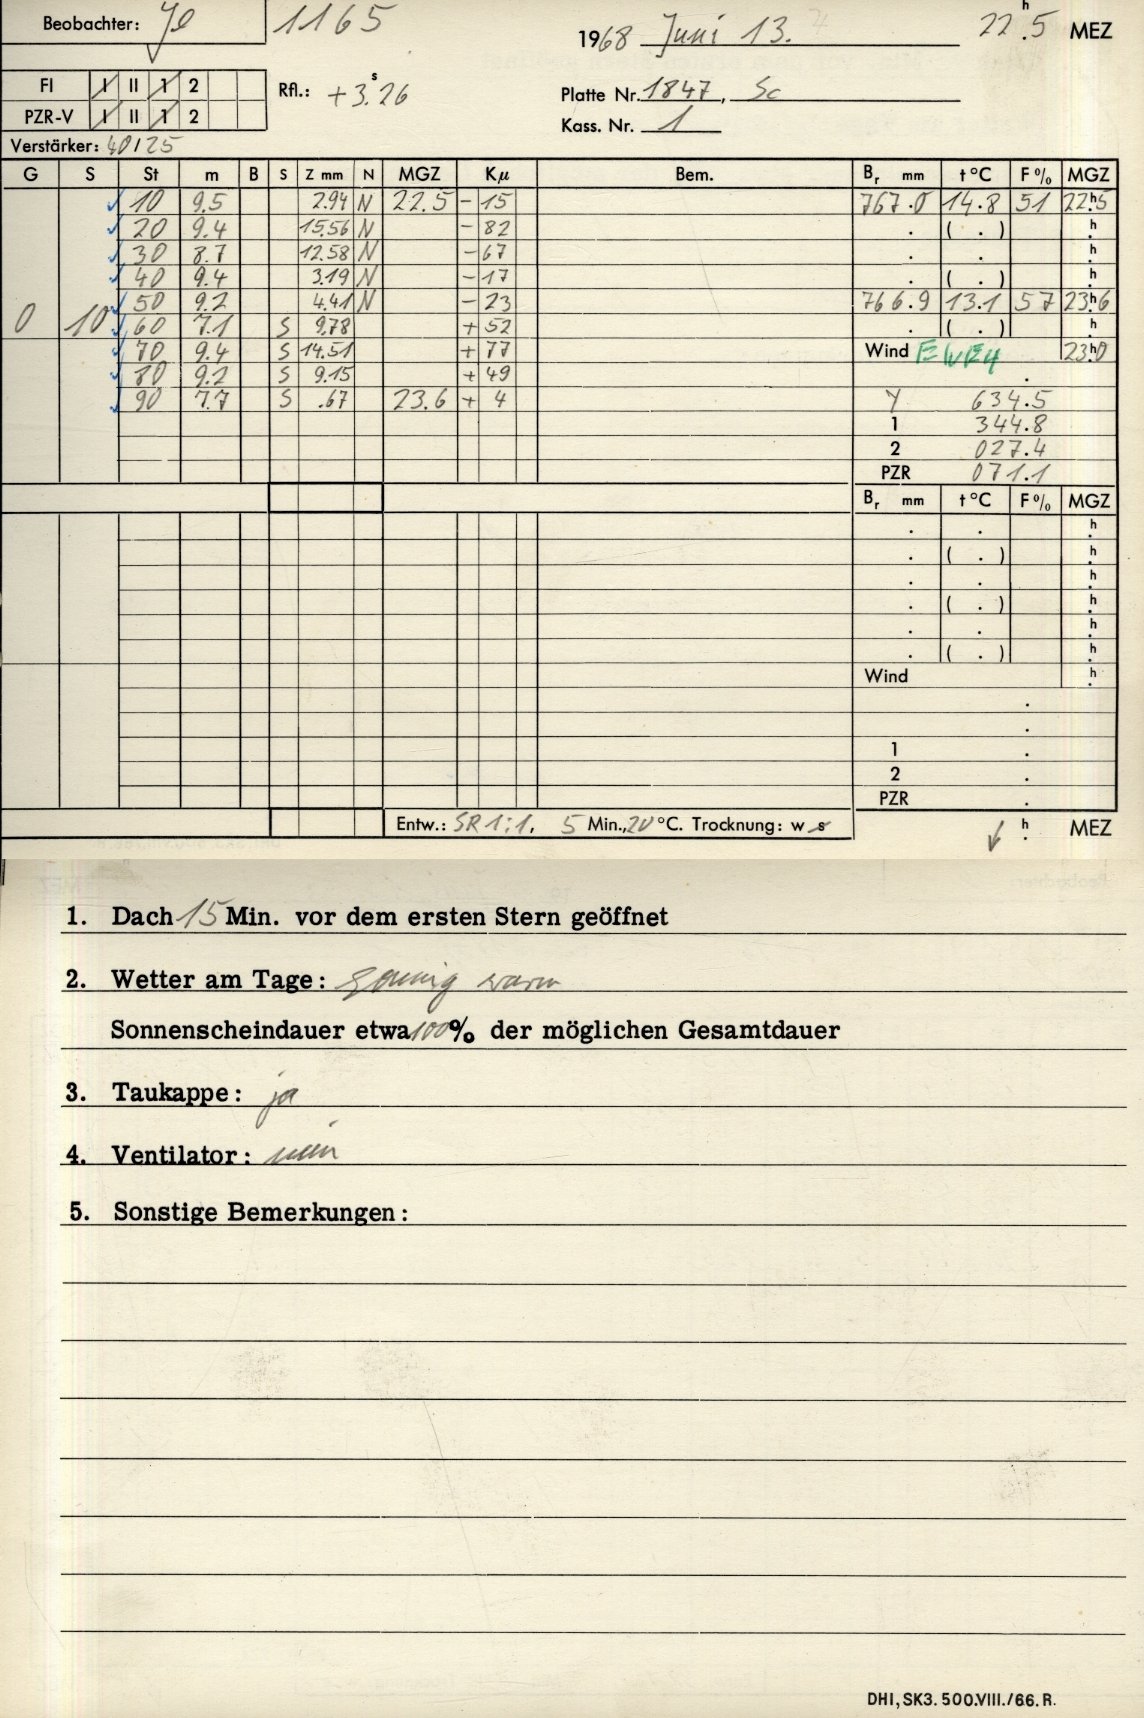 Beobachter: Je 1165 1968 Juni 13. 22.5 h MEZ
FI I II 1 2
PZR-V I II 1 2
Rfl.: +3.26 s
Platte Nr. 1847, Sc
Kass. Nr. 1
Verstärker: 40/25
G S St m B S Z mm N MGZ Kμ Bem. Br mm t °C F % MGZ
10 9.5 2.94 N 22.5 - 15 767.0 14.8 51 22.5 h
20 9.4 15.56 N - 82 . ( . ) h
30 8.7 12.58 N - 67 . . h
40 9.4 3.19 N - 17 . ( . ) h
50 9.2 4.41 N - 23 766.9 13.1 57 23.6 h
0 10 60 7.1 S 9.78 + 52 . ( . ) h
70 9.4 S 14.51 + 77 Wind E 4 23.0 h
80 9.2 S 9.15 + 49 .
90 7.7 S .67 23.6 + 4 Y 634.5
1 344.8
2 027.4
PZR 071.1
Br mm t °C F % MGZ
. . h
. ( . ) h
. . h
. ( . ) h
. . h
. ( . ) h
Wind h
.
.
1 .
2 .
PZR .
Entw.: SR 1:1, 5 Min., 20 °C. Trocknung: w s h MEZ
1. Dach 15 Min. vor dem ersten Stern geöffnet
2. Wetter am Tage: sonnig warm
Sonnenscheindauer etwa 100% der möglichen Gesamtdauer
3. Taukappe: ja
4. Ventilator: nein
5. Sonstige Bemerkungen:
DHI, SK3. 500.VIII./66. R.